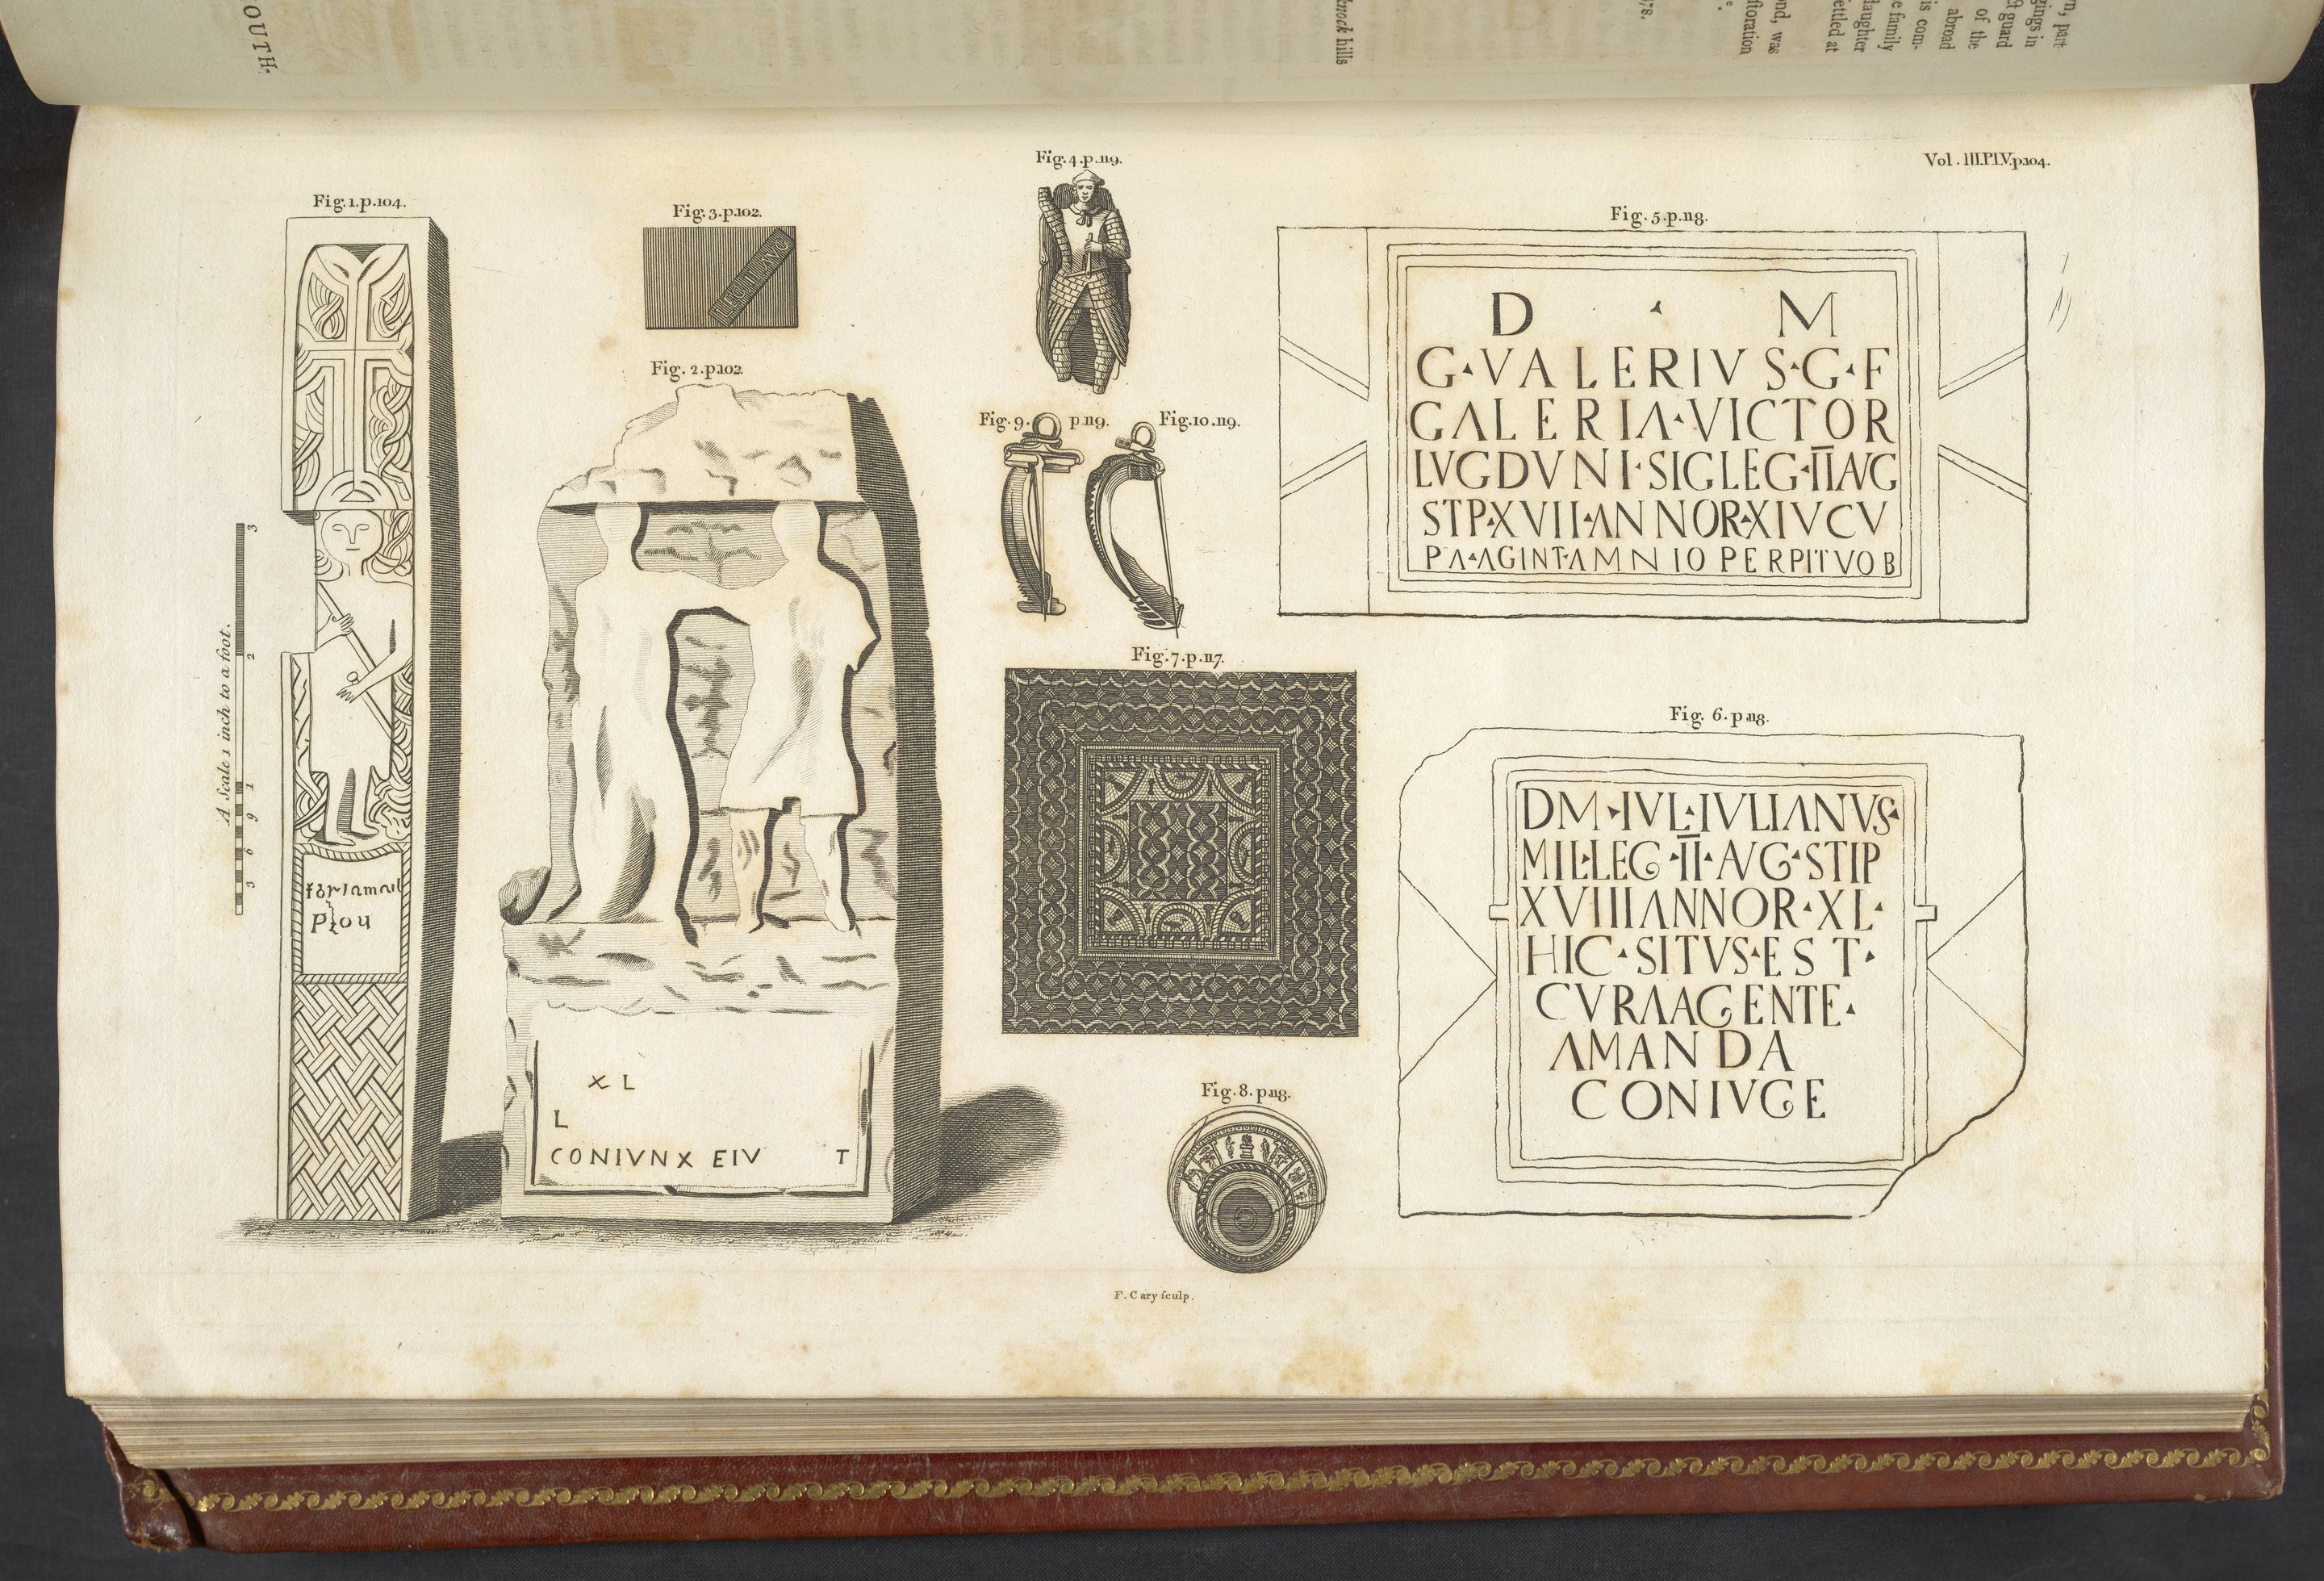 OUTH.
knock hills
178.
ond, was
ftoration
rn, part
gings in
ct guard
of the
abroad
is com-
e family
laughter
ettled at
Vol. III.Pl.V.p.104.
Fig. 1. p. 104.
A Scale 1 inch to a foot.
3
2
1
9
6
3
Fig. 3. p. 102.
LEG II AVG
Fig. 2. p. 102
X L
L
CONIVNX EIV T
Fig. 4. p. 119.
Fig. 9. p. 119.
Fig. 10. 119.
Fig. 7. p. 117.
Fig. 8. p. 118.
Fig. 5. p. 118.
D M
G·VALERIVS·G·F
GALERIA·VICTOR
LVGDVNI·SIGLEG·II AVG
STP·XVII·ANNOR·XIVCV
PA·AGINT·AMNIO PERPITVO B
Fig. 6. p. 118.
DM·IVL·IVLIANVS·
MIL·LEG·II·AVG·STIP
XVIIIANNOR·XL·
HIC·SITVS·EST·
CVRAAGENTE·
AMANDA
CONIVGE
F. Cary sculp.